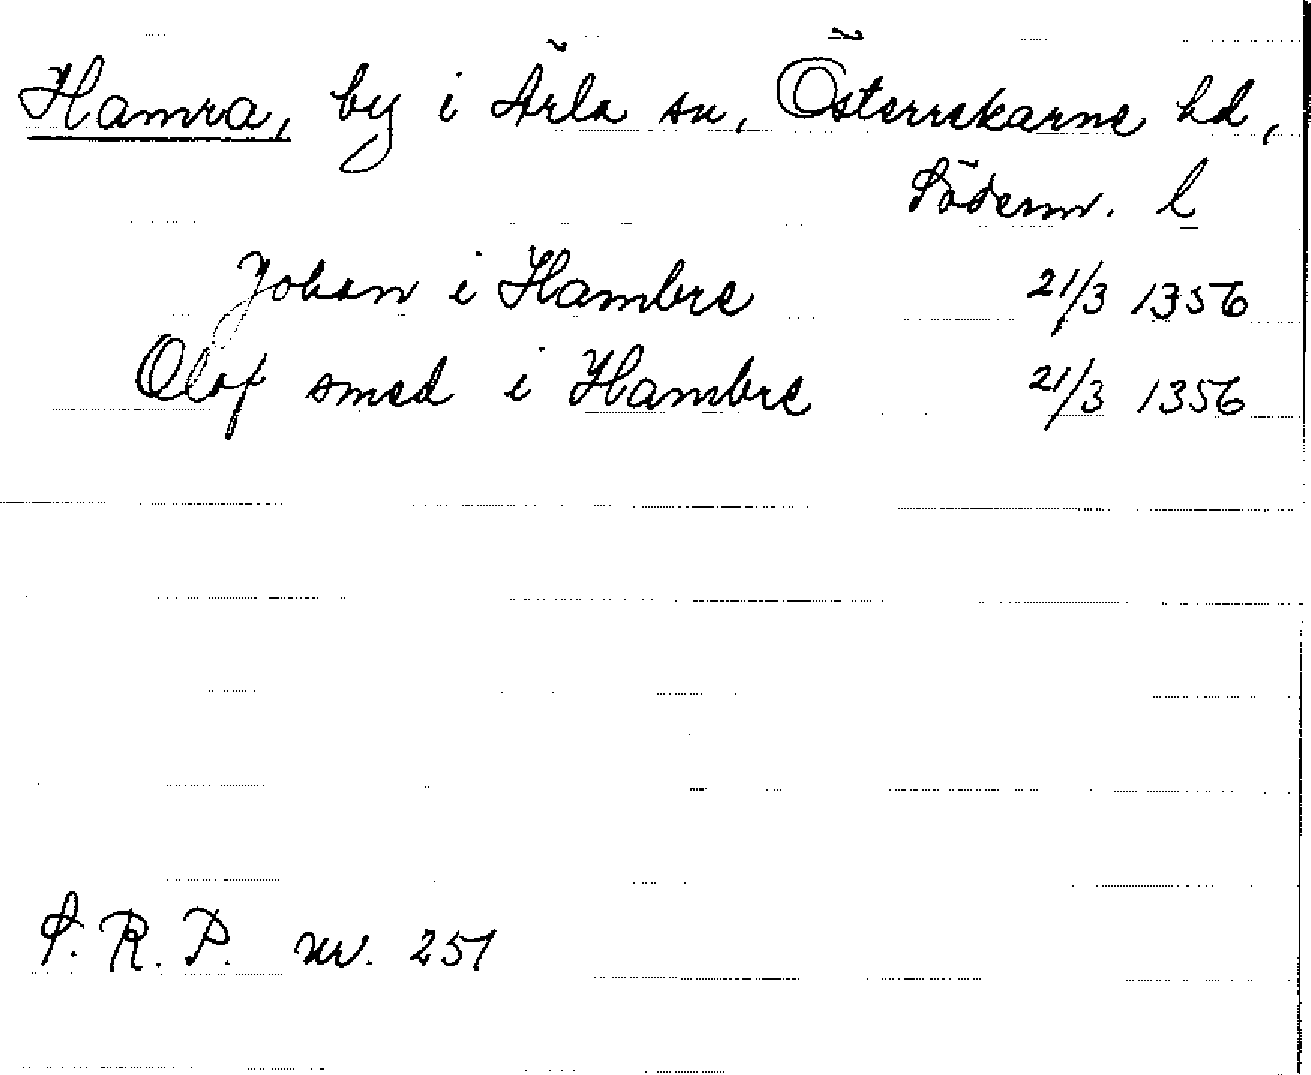 Hamra, by i Ärla sn, Österrekarne hd,
Söderm. l
Johan i Hambre 21/3 1356
Olof smed i Hambre 21/3 1356
S. R. P. nr. 251